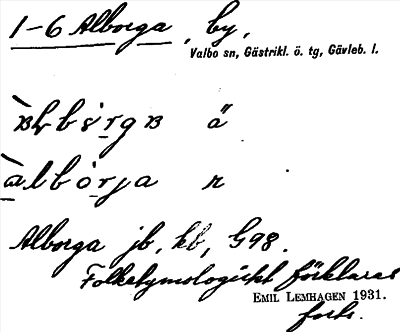 1-6 Alborga, by,
Valbo sn, Gästrikl. ö. tg, Gävleb. l.
ä
àlbòrja n
Alborga jb, kb, G98.
Folketymologiskt förklaras
EMIL LEMHAGEN 1931.
forts.